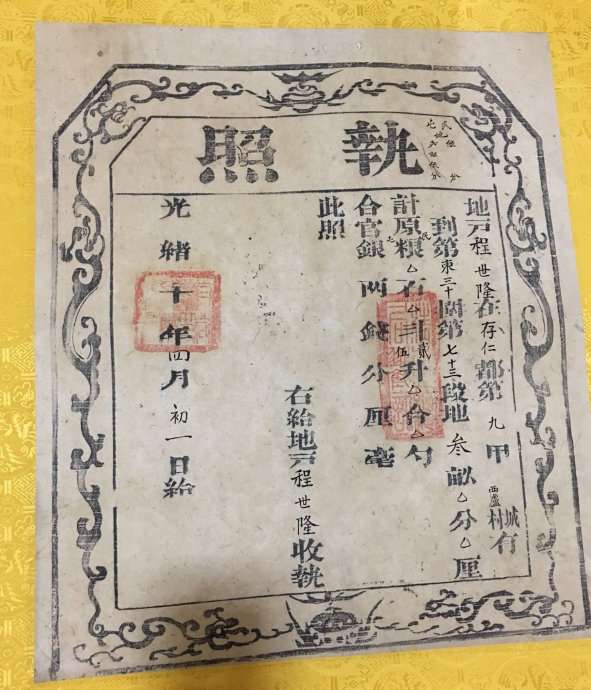 執照
地戸程世隆在存仁都第九甲西盧城村有
到第東三十圖第七十三段地叁畝厶分厶厘
計原糧厶石厶斗貳升伍合厶勺
合官銀兩錢分厘毫
此照
右給地戸程世隆收執
光緒十年四月初一日給